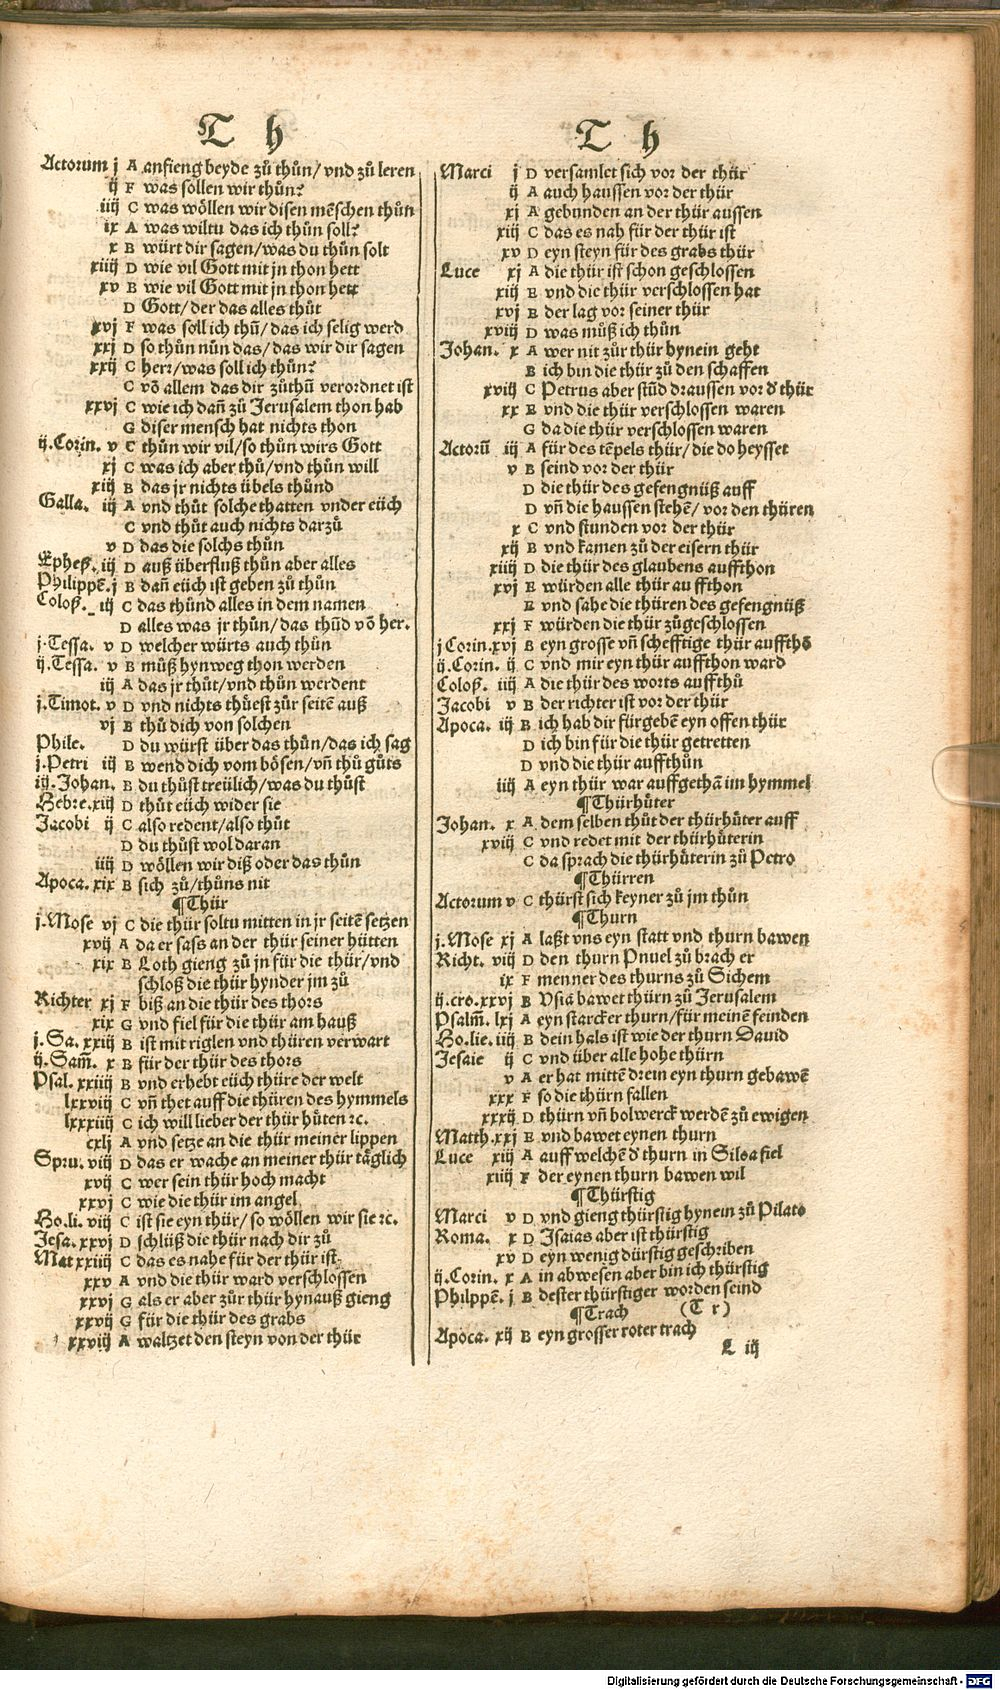 T h
Actorum j A anfieng beyde zů thůn/ vnd zů leren
ij F was sollen wir thůn?
iiij C was wöllen wir disen mēschen thůn
ix A was wiltu das ich thůn soll?
x B würt dir sagen/was du thůn solt
xiiij D wie vil Gott mit jn thon hett
xv B wie vil Gott mit jn thon hett
D Gott/der das alles thůt
xvj F was soll ich thů̄/das ich selig werd
xxj D so thůn nůn das/das wir dir sagen
xxij C herr/was soll ich thůn?
C vō allem das dir zůthů̄ verordnet ist
xxvj C wie ich dañ zů Jerusalem thon hab
G diser mensch hat nichts thon
ij.Corin. v C thůn wir vil/so thůn wirs Gott
xj C was ich aber thů/vnd thůn will
xiij B das jr nichts übels thůnd
Galla. iij A vnd thůt solche thatten vnder eüch
C vnd thůt auch nichts darzů
v D das die solchs thůn
Epheß. iij D auß überfluß thůn aber alles
Philippē.j B dañ eüch ist geben zů thůn
Coloß. iij C das thůnd alles in dem namen
D alles was jr thůn/das thůd vō her.
j.Tessa. v D welcher würts auch thůn
ij.Tessa. v B můß hynweg thon werden
iij A das jr thůt/vnd thůn werdent
j.Timot. v D vnd nichts thůest zůr seitē auß
vj B thů dich von solchen
Phile. D du würst über das thůn/das ich sag
j.Petri iij B wend dich vom bösen/vñ thů gůts
iij.Johan. B du thůst treülich/was du thůst
Hebre.xiij D thůt eüch wider sie
Jacobi ij C also redent/also thůt
D du thůst wol daran
iiij D wöllen wir diß oder das thůn
Apoca.xix B sich zů/thůns nit
¶Thür
j.Mose vj C die thür soltu mitten in jr seitē setzen
xvij A da er sass an der thür seiner hütten
xix B Loth gieng zů jn für die thür/vnd
schloß die thür hynder jm zů
Richter xj F biß an die thür des thors
xix G vnd fiel für die thür am hauß
j.Sa. xxiij B ist mit riglen vnd thüren verwart
ij.Sam̄. x B für der thür des thors
Psal. xxiiij B vnd erhebt eüch thüre der welt
lxxviij C vñ thet auff die thüren des hymmels
lxxxiiij C ich will lieber der thür hüten ꝛc.
cxlj A vnd setze an die thür meiner lippen
Spru. viij D das er wache an meiner thür täglich
xvij C wer sein thür hoch macht
xxvj C wie die thür im angel
Ho.li. viij C ist sie eyn thür/ so wöllen wir sie ꝛc.
Jesa. xxvj D schlüß die thür nach dir zů
Mat xxiiij C das es nahe für der thür ist
xxv A vnd die thür ward verschlossen
xxvj G als er aber zůr thür hynauß gieng
xxvij G für die thür des grabs
xxviij A waltzet den steyn von der thür
T h
Marci j D versamlet sich vor der thür
ij A auch haussen vor der thür
xj A gebunden an der thür aussen
xiij C das es nah für der thür ist
xv D eyn steyn für des grabs thür
Luce xj A die thür ist schon geschlossen
xiij E vnd die thür verschlossen hat
xvj E der lag vor seiner thür
xviij D was můß ich thůn
Johan. x A wer nit zůr thür hynein geht
B ich bin die thür zů den schaffen
xviij C Petrus aber stůd draussen vor d' thür
xx E vnd die thür verschlossen waren
G da die thür verschlossen waren
Actorū iij A für des tēpels thür/die do heysset
v B seind vor der thür
D die thür des gefengnüß auff
D vñ die haussen stehē/ vor den thüren
x C vnd stunden vor der thür
xij B vnd kamen zů der eisern thür
xiiij D die thür des glaubens auffthon
xvj E würden alle thür auffthon
E vnd sahe die thüren des gefengnüß
xxj F würden die thür zůgeschlossen
j Corin.xvj B eyn grosse vñ schefftige thür auffthō
ij.Corin. ij C vnd mir eyn thür auffthon ward
Coloß. iiij A die thür des worts auffthů
Jacobi v B der richter ist vor der thür
Apoca. iij B ich hab dir fürgebē eyn offen thür
D ich bin für die thür getretten
D vnd die thür auffthůn
iiij A eyn thür war auffgethā im hymmel
¶Thürhüter
Johan. x A dem selben thůt der thürhüter auff
xviij C vnd redet mit der thürhüterin
C da sprach die thürhüterin zů Petro
¶Thürren
Actorum v C thürst sich keyner zů jm thůn
¶Thurn
j.Mose xj A laßt vns eyn statt vnd thurn bawen
Richt. viij D den thurn Pnuel zů brach er
ix F menner des thurns zů Sichem
ij.cro.xxvj B Vsia bawet thürn zů Jerusalem
Psalm̄. lxj A eyn starcker thurn/für meinē feinden
Ho.lie. iiij B dein hals ist wie der thurn Dauid
Jesaie ij C vnd über alle hohe thürn
v A er hat mittē drein eyn thurn gebawē
xxx F so die thürn fallen
xxxij D thürn vñ bolwerck werdē zů ewigen
Matth.xxj E vnd bawet eynen thurn
Luce xiij A auff welchē d' thurn in Siloa fiel
xiiij F der eynen thurn bawen wil
¶Thürstig
Marci v D vnd gieng thürstig hynein zů Pilato
Roma. x D Isaias aber ist thürstig
xv D eyn wenig dürstig geschriben
ij.Corin. x A in abwesen aber bin ich thürstig
Philppē. j B dester thürstiger worden seind
¶Trach (T r)
Apoca. xij B eyn grosser roter trach
L iij
Digitalisierung gefördert durch die Deutsche Forschungsgemeinschaft - DFG